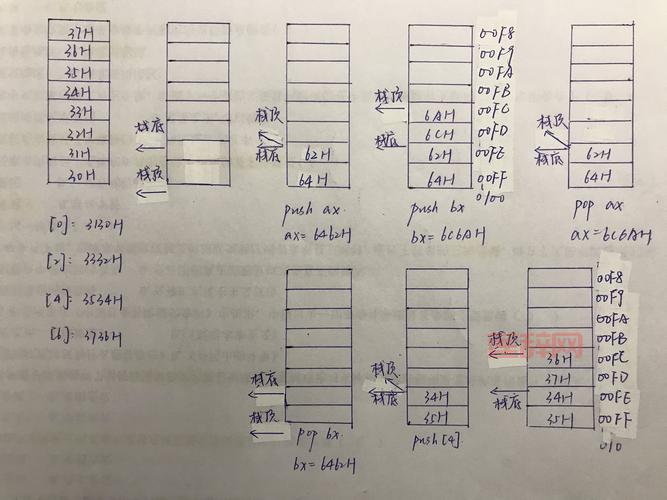 37H
36H
35H
34H
33H
32H
31H
30H
[0]: 3130H
[2]: 3332H
[4]: 3534H
[6]: 3736H
栈底
栈顶
栈顶
栈底
62H
64H
push ax.
ax=6462H
栈顶
栈底
6AH
6CH
62H
64H
push bx
bx=6C6AH
00F8
00F9
00FA
00FB
00FC
00FD
00FE
00FF
0100
栈顶
栈底
62H
64H
pop ax
ax=6C6AH
栈底
栈顶
pop bx.
bx=6462H
栈顶
栈底
34H
35H
push[4].
栈顶
栈底
36H
37H
34H
35H
00F8
00F9
00FA
00FB
00FC
00FD
00FE
00FF
010